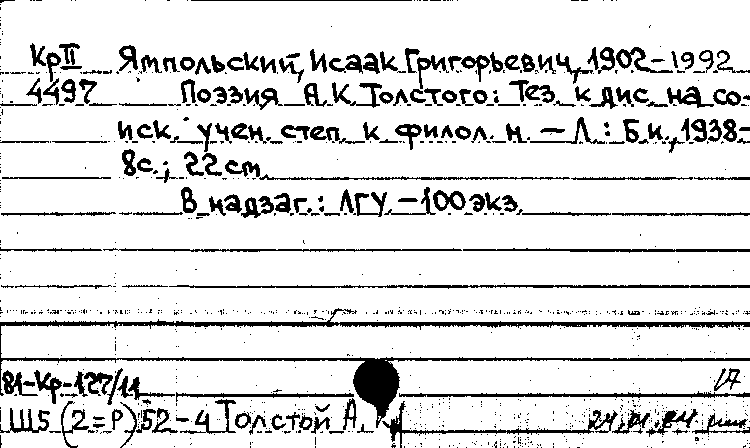 КрII Ямпольский, Исаак Григорьевич, 1902-1992
4497 Поэзия А.К.Толстого: Тез. к дис. на со-
иск. учен. степ. к. филол. н. — Л.: Б.и., 1938-
8с.; 22 cm.
В надзаг.: ЛГУ. -100 экз.
81-Кр-127/11 17
Ш5(2=Р)52-4 Толстой А.К.